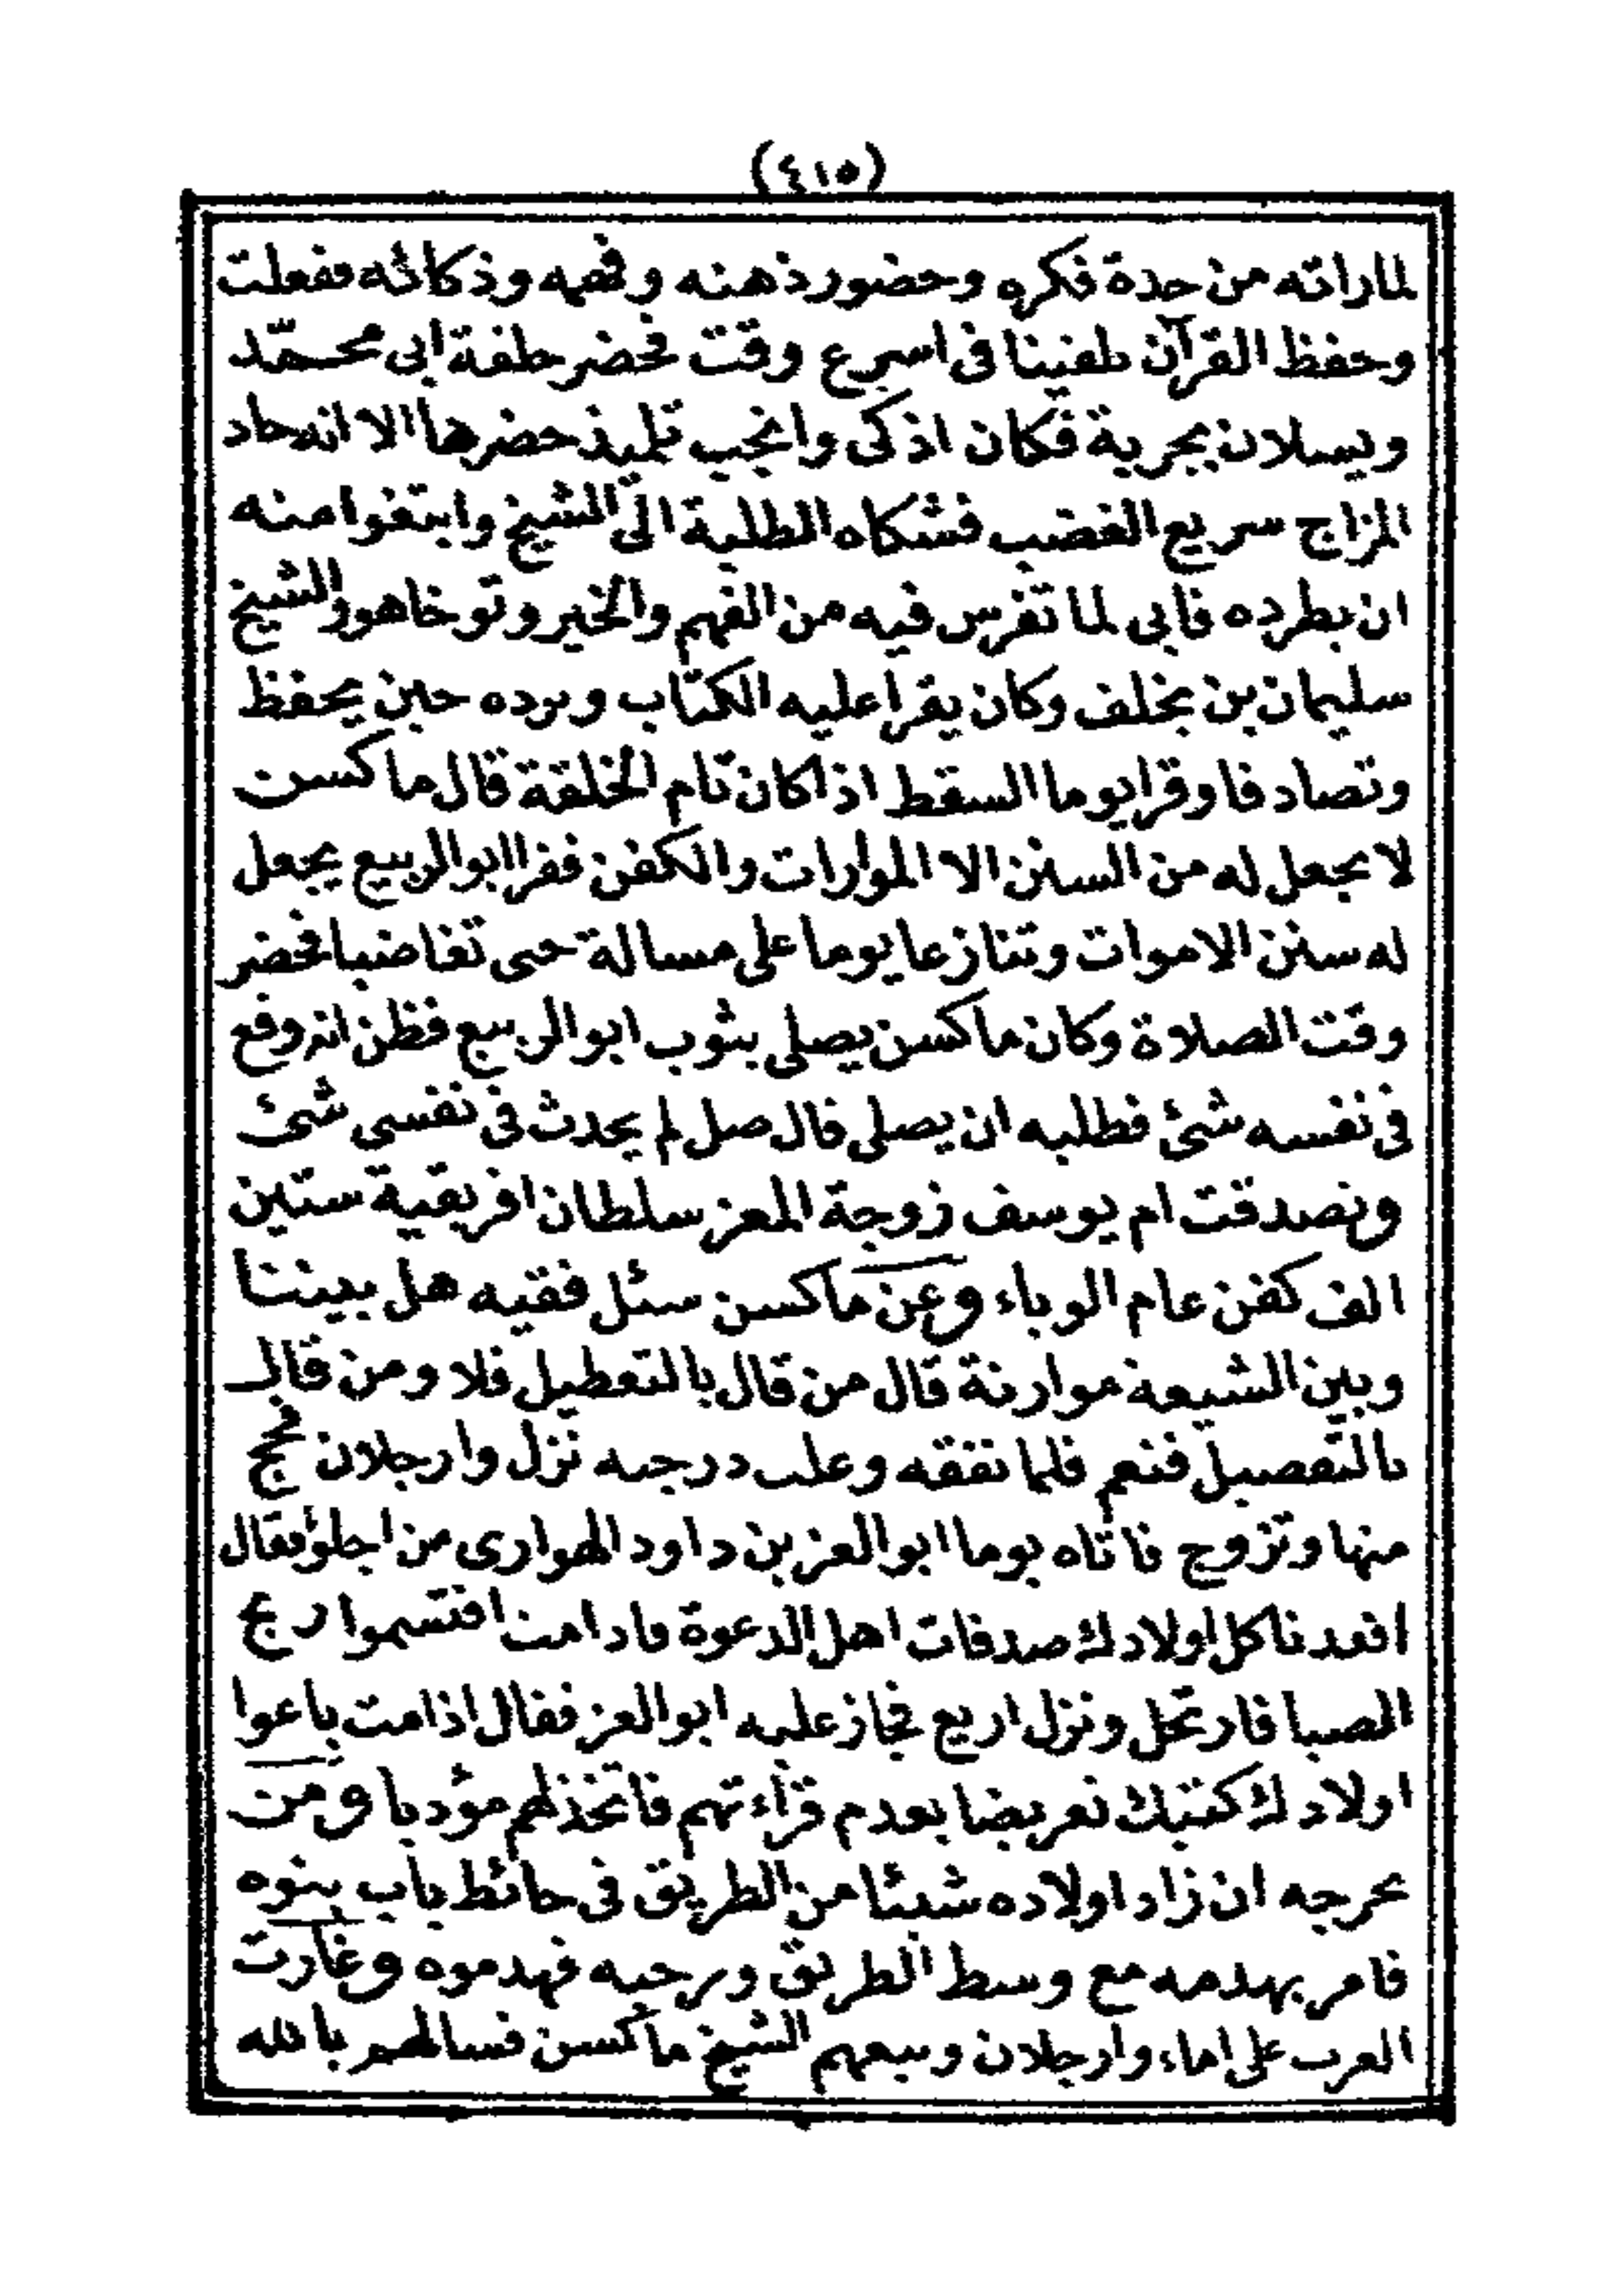 (٤١٥)
لما راته من حدة فكره وحضور ذهنه وفهمه وذكائه ففعلت
وحفظ القرآن تلقينا فى اسرع وقت فحضر حلقة ابى محمّد
ويسلان بجربة فكان اذكى وانجب تلميذ حضرها الا انه حاد
المزاج سريع الغضب فشكاه الطلبة الى الشيخ وابتغوا منه
ان يطرده فابى لما تفرس فيه من الفهم والخير وتوخاهو والشيخ
سليمان بن يخلف وكان يقرا عليه الكتاب ويرده حين يحفظ
وتصادفا وقرا يوما السقط اذا كان تام الخلقة قال ماكسن
لا يجعل له من السنن الا الموارات والكفن فقرا ابو الربيع يجعل
له سنن الاموات وتنازعا يوما على مسالة حتى تغاضبا فحضر
وقت الصلاة وكان ماكسن يصلى بثوب ابو الربيع فظن انه وقع
فى نفسه شئ فطلبه ان يصلى قال صل لم يحدث فى نفسى شئ
وتصدقت ام يوسف زوجة المعز سلطان افريقية ستين
الف كفن عام الوباء وعن ماكسن سئل فقيه هل بيننا
وبين الشيعة موارثة قال من قال بالتعطيل فلا ومن قال
بالتفصيل فنعم فلما تفقه وعلت درجته نزل وارجلان فحج
منها وتزوج فاتاه يوما ابو العز بن داود الهوارى من اجلؤ فقال
اقعدتا كل اولادك صدقات اهل الدعوة فاذا مت اقتسموا ريح
الصبا فارتحل ونزل اريغ فجاز عليه ابو العز فقال اذا مت باعوا
اولادك كتبك تعريضا بعدم قرآءتهم فاتخذ لهم مؤدبا ومن
تحرجه ان زاد اولاده شيئا من الطريق فى حائط باب بنوه
فامر بهدمه مع وسط الطريق ورحبه فهدموه وغارت
العرب على اماء وارجلان وتبعهم الشيخ ماكسن فسالهم بالله